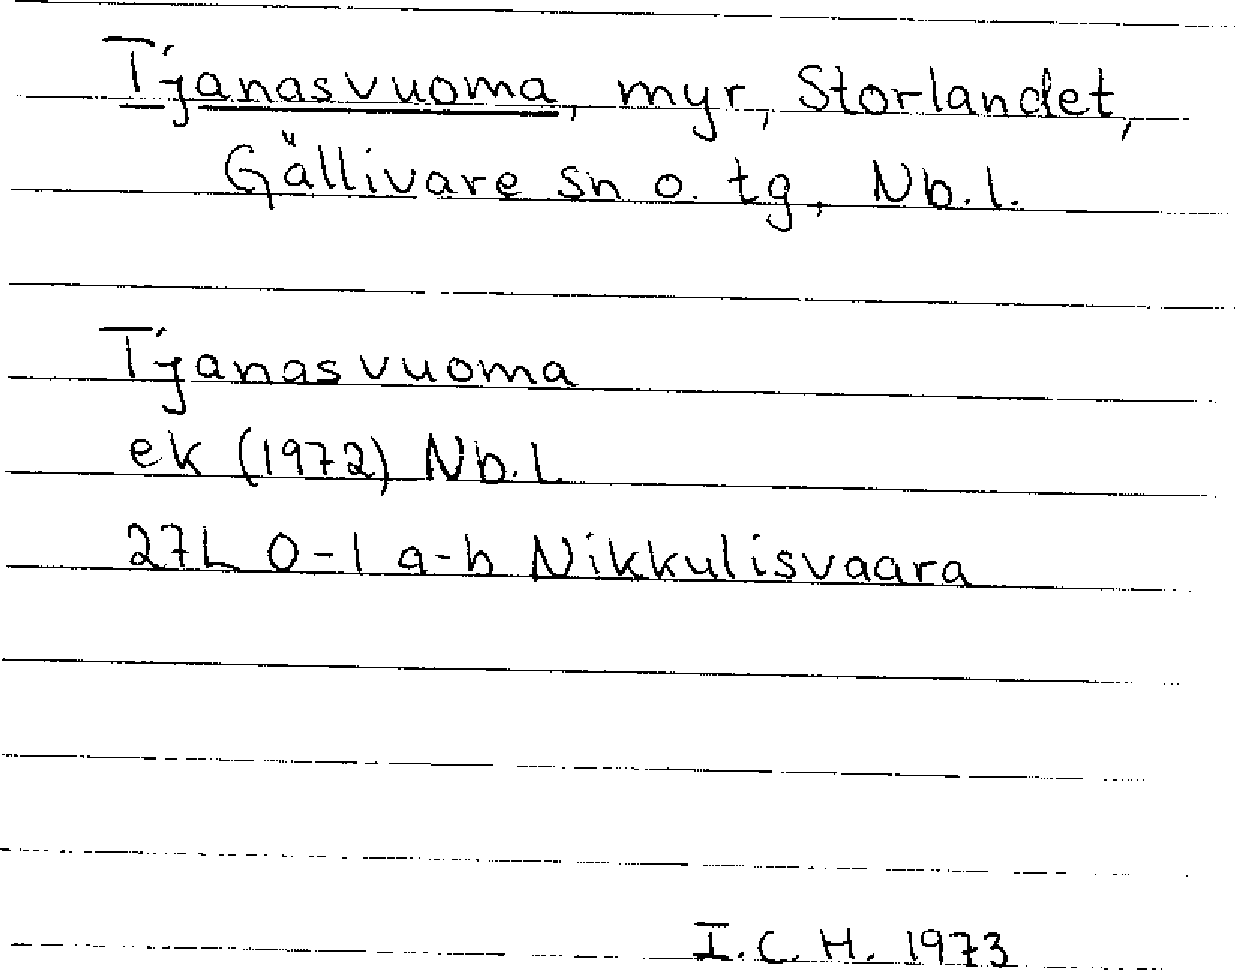 Tjanasvuoma, myr, Storlandet,
Gällivare sn o. tg, Nb.l.
Tjanasvuoma
ek (1972) Nb.l.
27L 0-1 a-b Nikkulisvaara
I.C.H. 1973